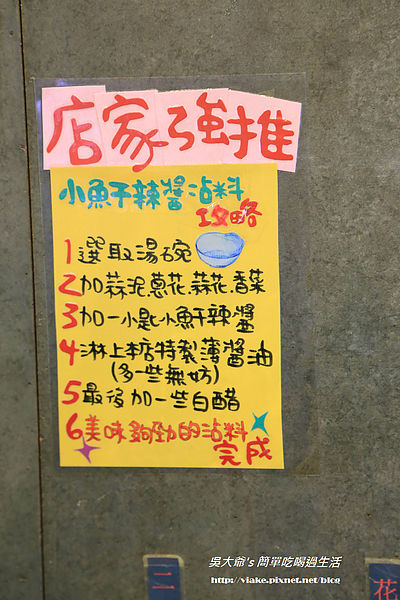 店家強推
小魚干辣醬沾料
攻略
1 選取湯碗
2 加蒜泥.蔥花.蒜花.香菜
3 加一小匙小魚干辣醬
4 淋上本店特製薄醬油
(多一些無妨)
5 最後加一些白醋
6 美味夠勁的沾料
完成
吳大爺's 簡單吃喝過生活
http://viake.pixnet.net/blog
二
花